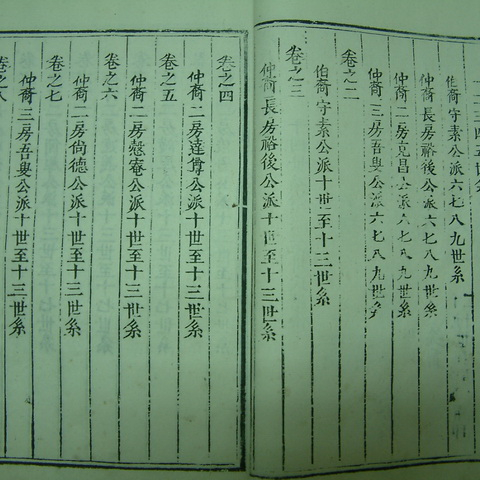 一二三四五世系
伯裔守素公派六七八九世系
仲裔長房裕後公派六七八九世系
仲裔二房克昌公派六七八九世系
仲裔三房吾與公派六七八九世系
卷之二
伯裔守素公派十世至十三世系
卷之三
仲裔長房裕後公派十世至十三世系
卷之四
仲裔二房達尊公派十世至十三世系
卷之五
仲裔二房愨菴公派十世至十三世系
卷之六
仲裔二房尚德公派十世至十三世系
卷之七
仲裔三房吾與公派十世至十三世系
卷之八